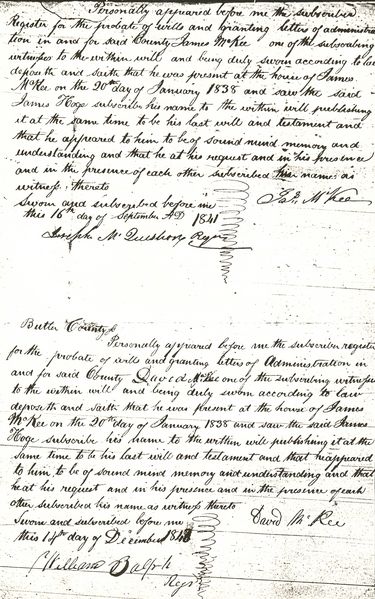 Personally appeared before me the subscriber
Register for the probate of wills and Granting letters of administra
tion in and for said County James McKee one of the subscribing
witnesses to the within will and being duly sworn according to law
deposeth and saith that he was present at the house of James
McKee on the 20th day of January 1838 and saw the said
James Hoge subscribe his name to the within will publishing
it at the same time to be his last will and testament and
that he appeared to him to be of sound mind memory and
understanding and that he at his request and in his presence
and in the presence of each other subscribed his name as
witness thereto
Sworn and subscribed before me
this 16th day of September AD 1841
Jas. McKee
Joseph McQuistion Regr
Butler County
Personally appeared before me the subscriber register
for the probate of wills and granting letters of Administration in
and for said County David McKee one of the subscribing witnesses
to the within will and being duly sworn according to law
deposeth and saith that he was present at the house of James
McKee on the 20th day of January 1838 and saw the said James
Hoge subscribe his name to the written will publishing it at the
same time to be his last will and testament and that he appeared
to him to be of sound mind memory and understanding and that
he at his request and in his presence and in the presence of each
other subscribed his name as witness thereto
Sworn and subscribed before me
David McKee
this 14th day of December
William Balph
Regr